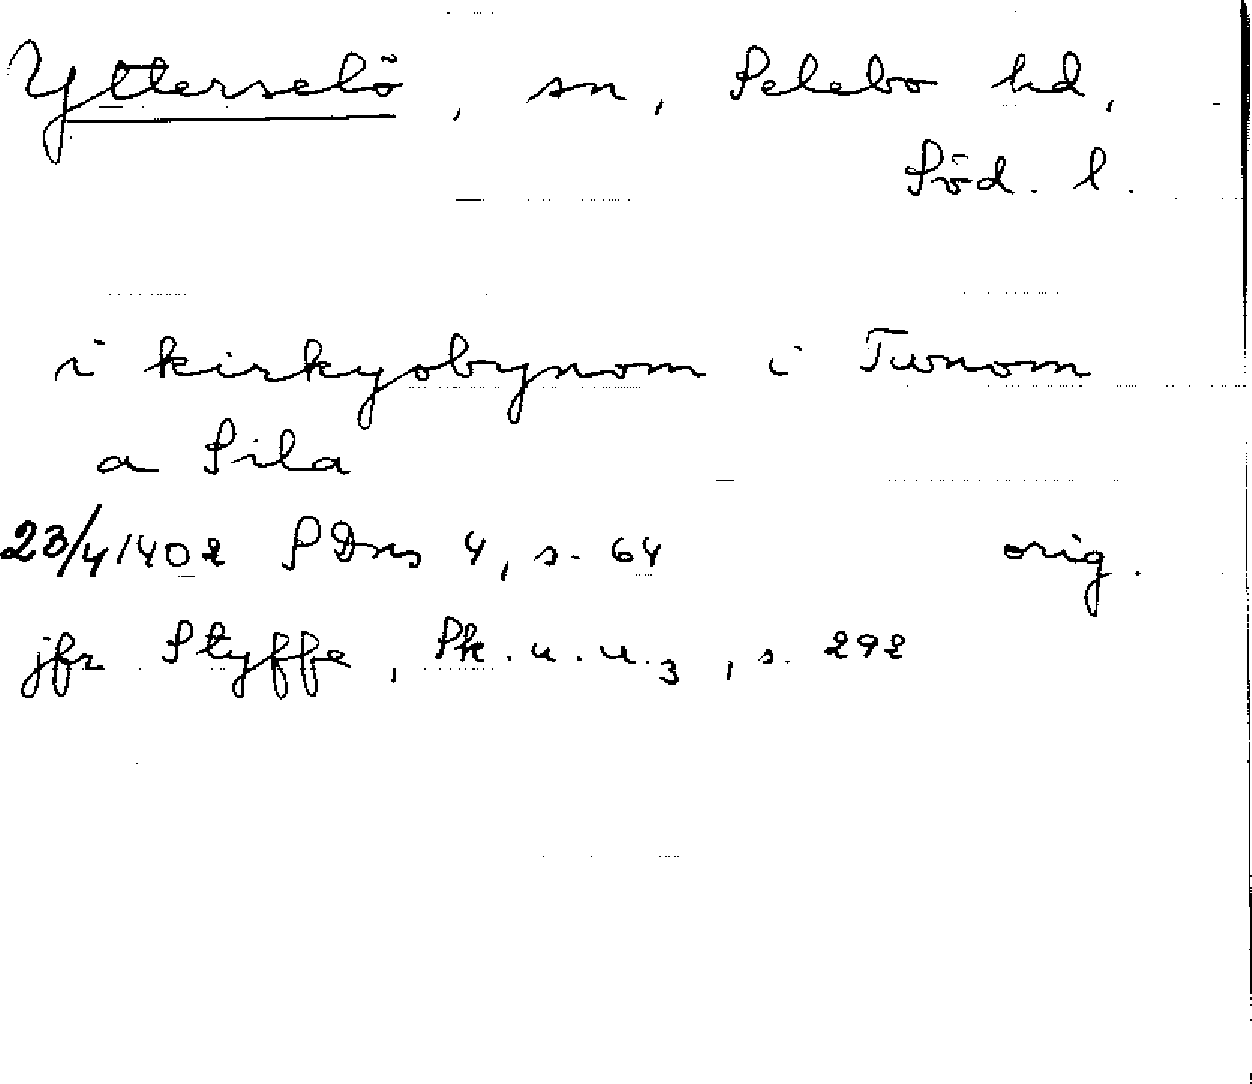 Ytterselö, sn, Selebo hd,
Söd. l.
i kirkyobynom i Twnom
a Sila
23/4 1402 SDns 4, s. 64 orig.
jfr Styffe, Sk. u. u. 3, s. 292